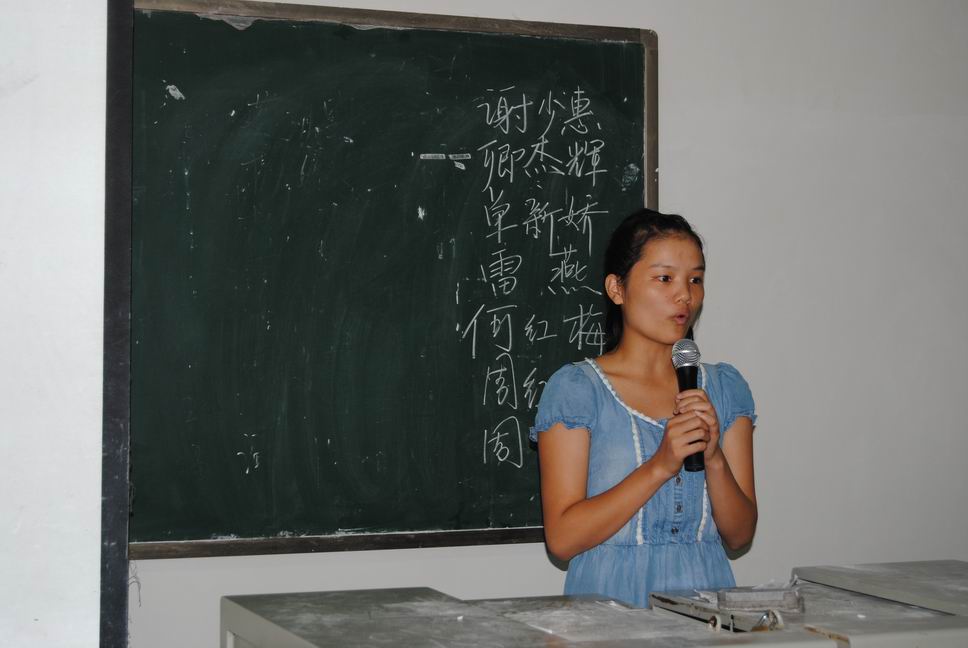 谢少惠
卿杰辉
单新娇
雷燕
何红梅
周红
周